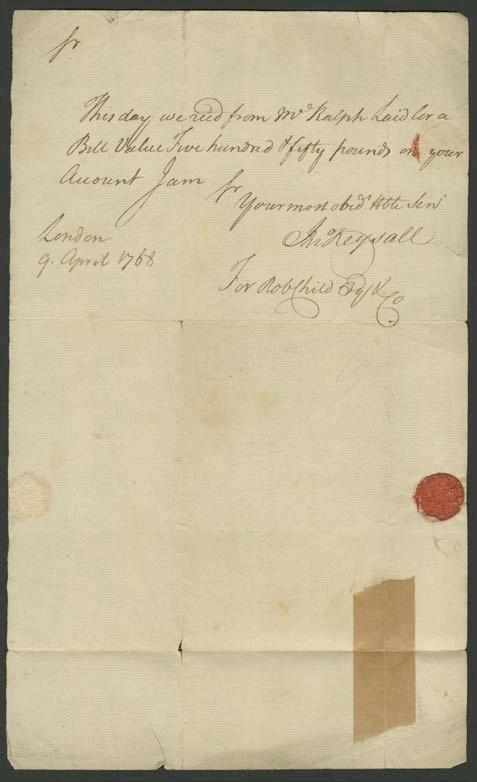 Sr
This day we recd from Mr Ralph Laidler a
Bill Value Five hundred & fifty pounds on your
Account I am Sr
Your most obedt Hble Servt
Jno Keysall
London
9. April 1768
For Rob Child Esqr & Co